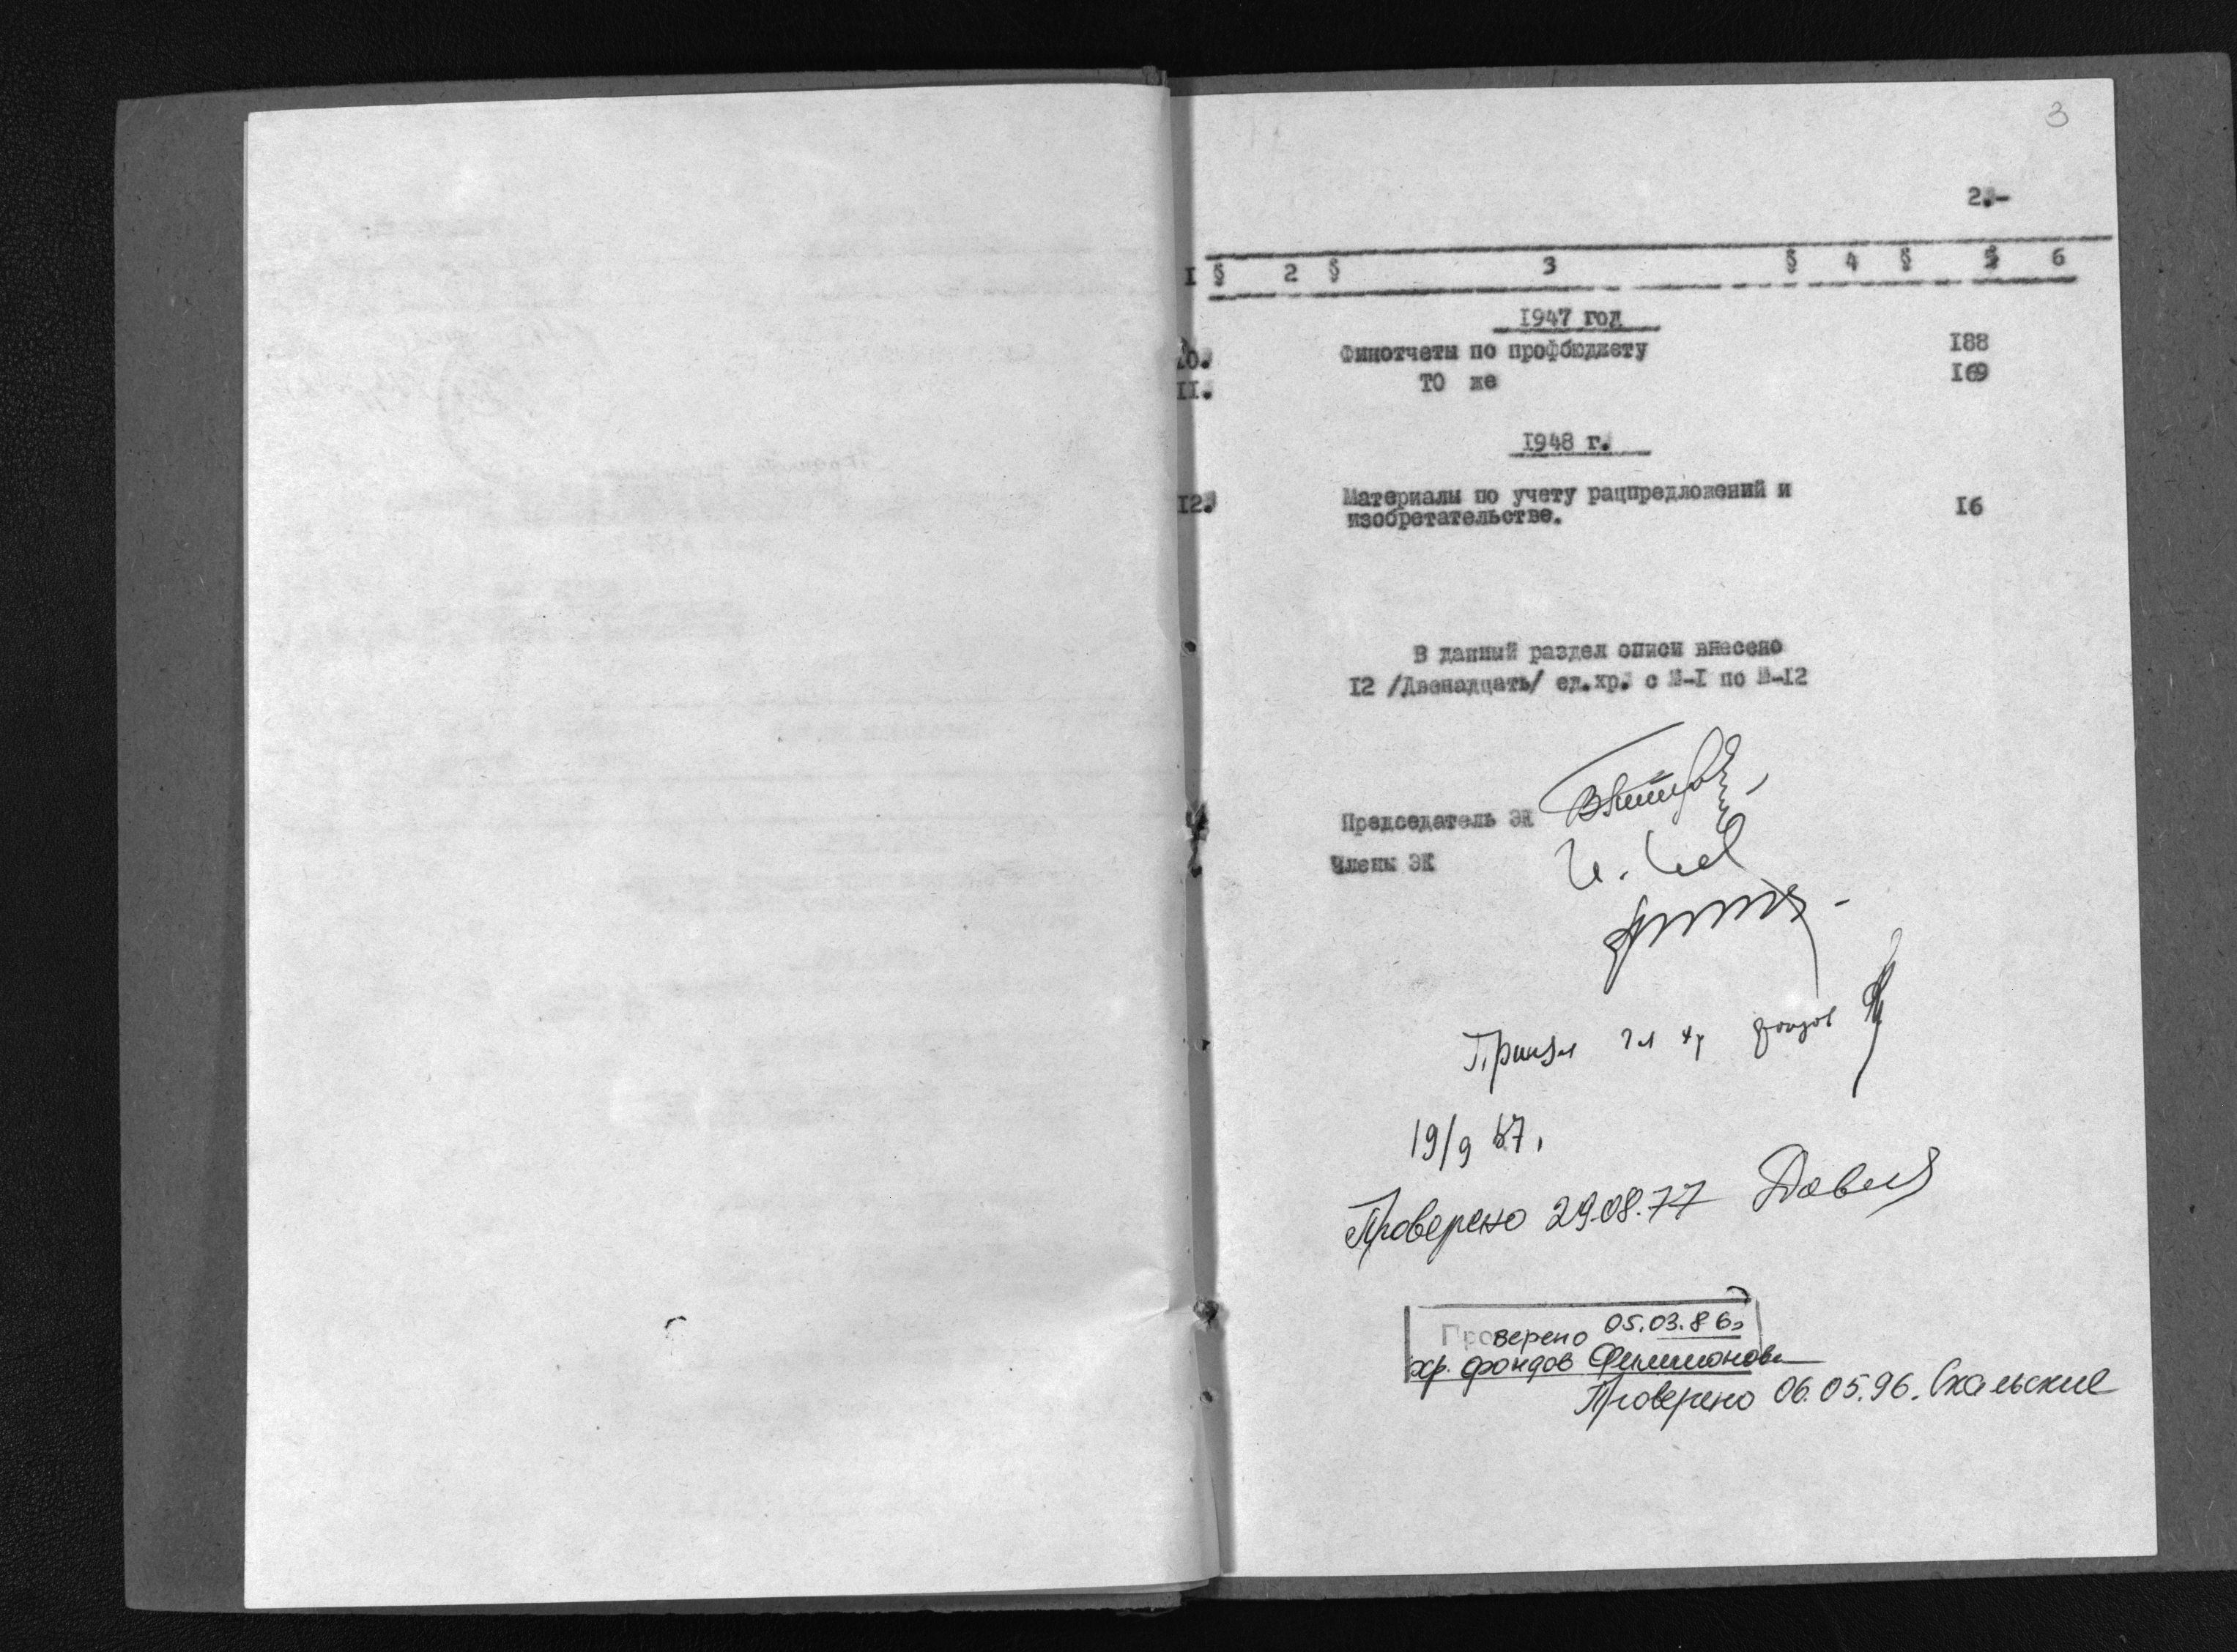 3
2.-
I § 2 § 3 § 4 § 5 6
1947 год
10. Финотчеты по профбюджету 188
II. ТО же 169
1948 г.
12. Материалы по учету рацпредложений и 16
изобретательстве.
В данный раздел описи внесено
12 /Двенадцать/ ед.хр. с №-1 по №-12
Председатель ЭК
Члены ЭК
Принял гл хр фондов
19/9
Проверено 29.08.77
Проверено 05.03.86г
хр. фондов Филимонова
Проверено 06.05.96.